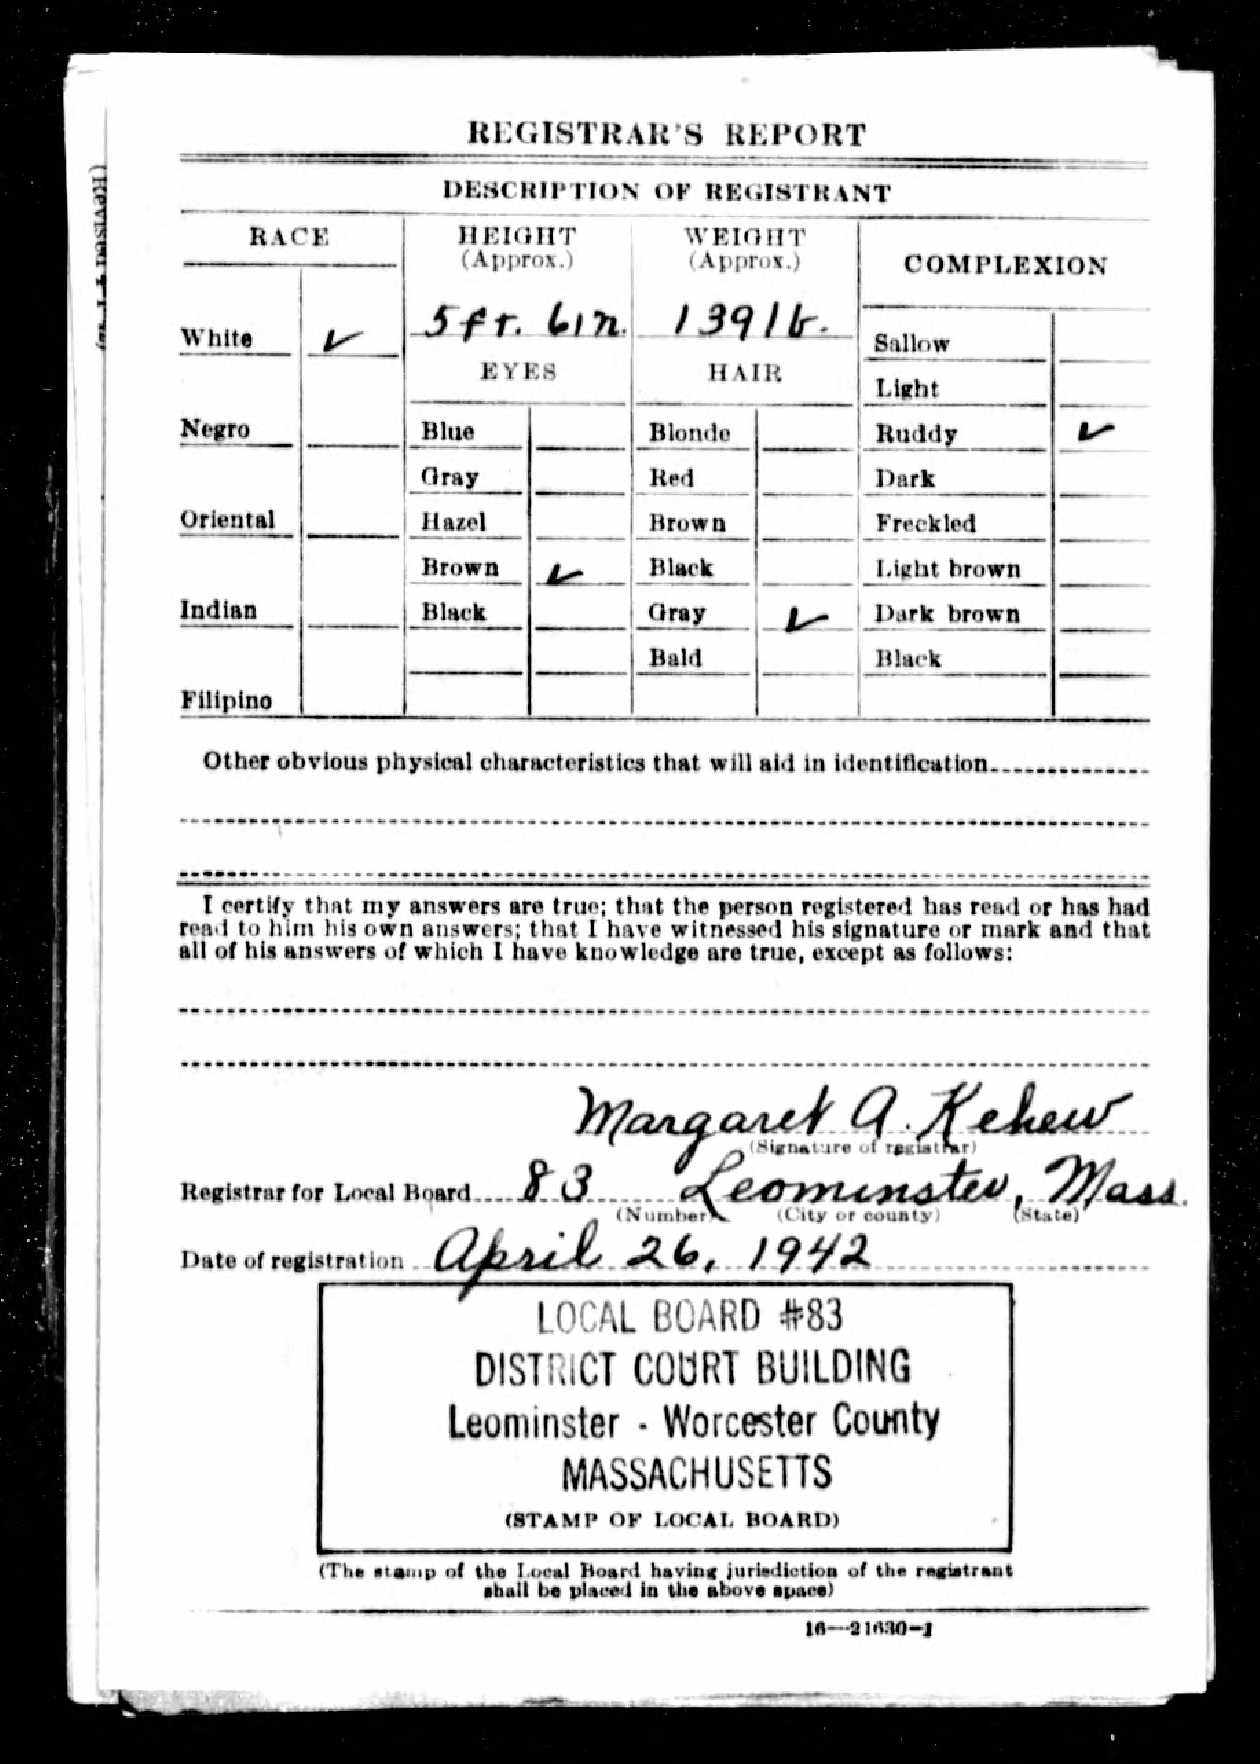 REGISTRAR'S REPORT
DESCRIPTION OF REGISTRANT
RACE
HEIGHT
(Approx.)
WEIGHT
(Approx.)
COMPLEXION
5 ft. 6 in.
139 lb.
White ✓
Sallow
EYES
HAIR
Light
Negro
Blue
Blonde
Ruddy ✓
Gray
Red
Dark
Oriental
Hazel
Brown
Freckled
Brown ✓
Black
Light brown
Indian
Black
Gray ✓
Dark brown
Bald
Black
Filipino
Other obvious physical characteristics that will aid in identification
I certify that my answers are true; that the person registered has read or has had
read to him his own answers; that I have witnessed his signature or mark and that
all of his answers of which I have knowledge are true, except as follows:
Margaret A. Kehew
(Signature of registrar)
Registrar for Local Board 83 Leominster, Mass.
(Number) (City or county) (State)
Date of registration April 26, 1942
LOCAL BOARD #83
DISTRICT COURT BUILDING
Leominster - Worcester County
MASSACHUSETTS
(STAMP OF LOCAL BOARD)
(The stamp of the Local Board having jurisdiction of the registrant
shall be placed in the above space)
16—21630-1